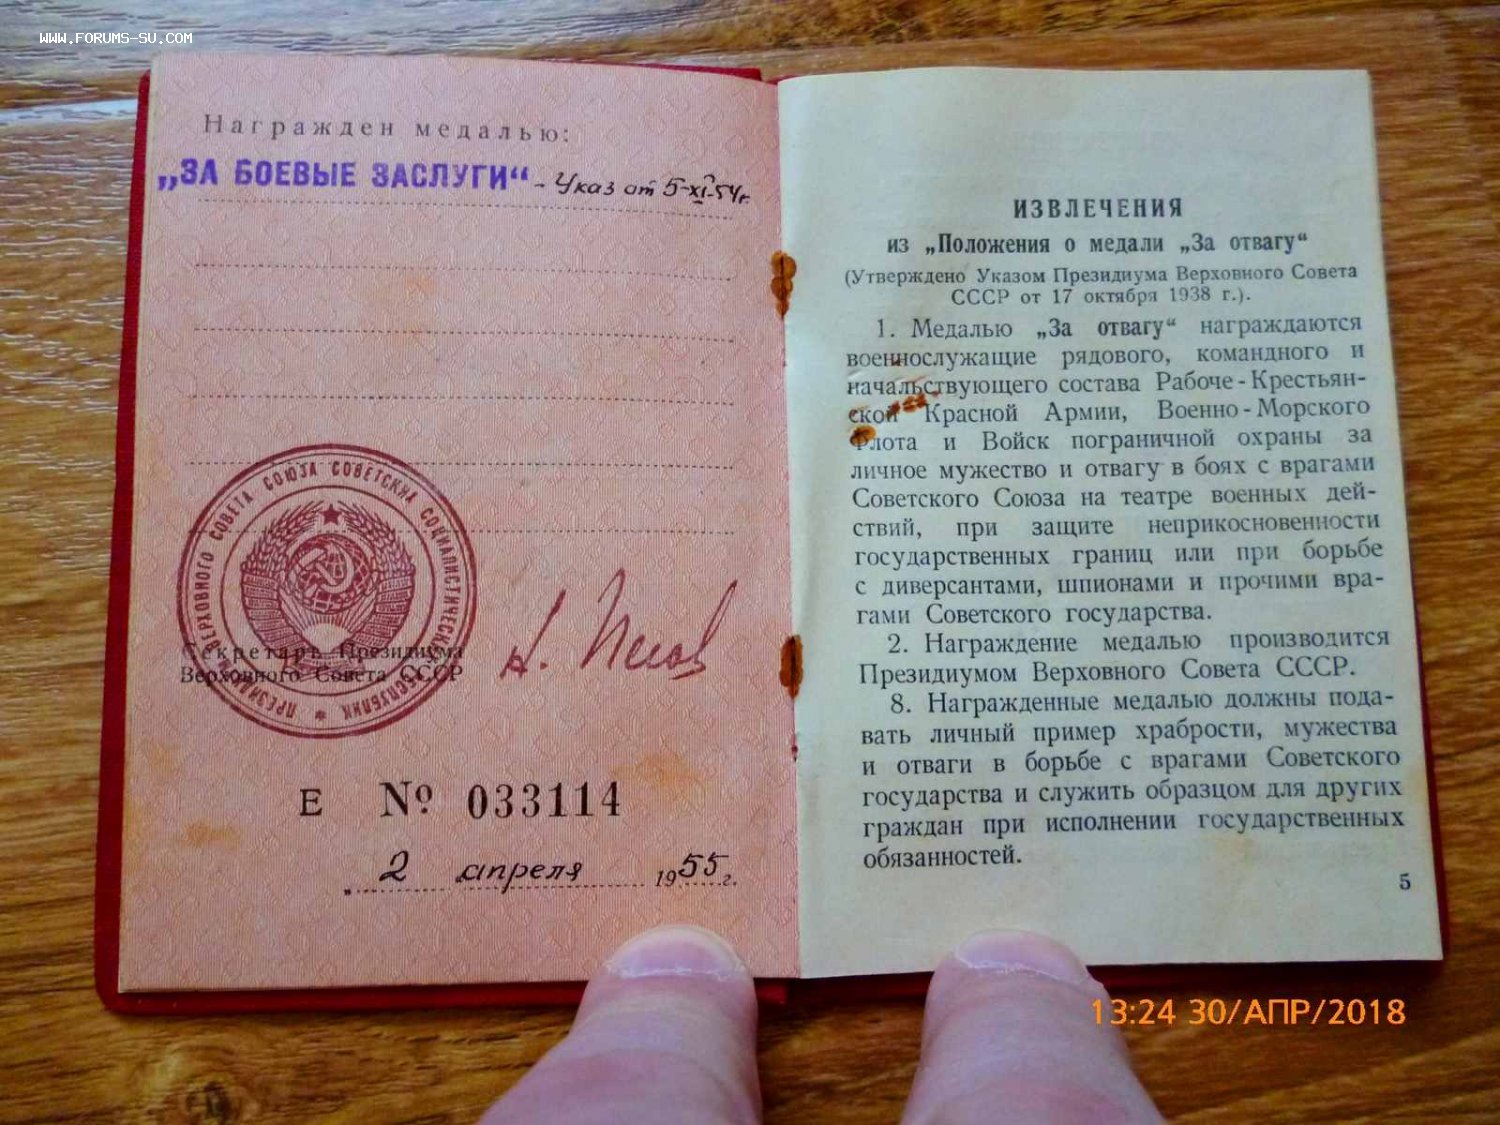 WWW.FORUMS-SU.COM
Награжден медалью:
„ЗА БОЕВЫЕ ЗАСЛУГИ“ - Указ от 5-XI-54г.
ПРЕЗИДИУМ ВЕРХОВНОГО СОВЕТА СОЮЗА СОВЕТСКИХ СОЦИАЛИСТИЧЕСКИХ РЕСПУБЛИК *
Секретарь Президиума
Верховного Совета СССР
Е № 033114
2 апреля 1955 г.
ИЗВЛЕЧЕНИЯ
из „Положения о медали „За отвагу“
(Утверждено Указом Президиума Верховного Совета
СССР от 17 октября 1938 г.).
1. Медалью „За отвагу“ награждаются
военнослужащие рядового, командного и
начальствующего состава Рабоче-Крестьян-
ской Красной Армии, Военно-Морского
Флота и Войск пограничной охраны за
личное мужество и отвагу в боях с врагами
Советского Союза на театре военных дей-
ствий, при защите неприкосновенности
государственных границ или при борьбе
с диверсантами, шпионами и прочими вра-
гами Советского государства.
2. Награждение медалью производится
Президиумом Верховного Совета СССР.
8. Награжденные медалью должны пода-
вать личный пример храбрости, мужества
и отваги в борьбе с врагами Советского
государства и служить образцом для других
граждан при исполнении государственных
обязанностей.
5
13:24 30/АПР/2018